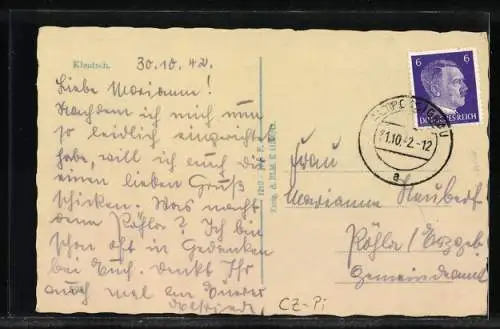 Klentsch.
30.10.42.
Liebe Mariann!
Nachdem ich mich nun
so leidlich eingerichtet
habe, will ich auch dir
einen lieben Gruß
schicken. Was macht
denn Röhla? Ich bin
schon oft in Gedanken
bei Euch. Denkt Ihr
auch mal an Eueren
6 6
DEUTSCHES REICH
31.10.42-12
a
Frau
Marianne Neubert
Röhla / Erzgeb
Gemeindeamt
CZ-Pi